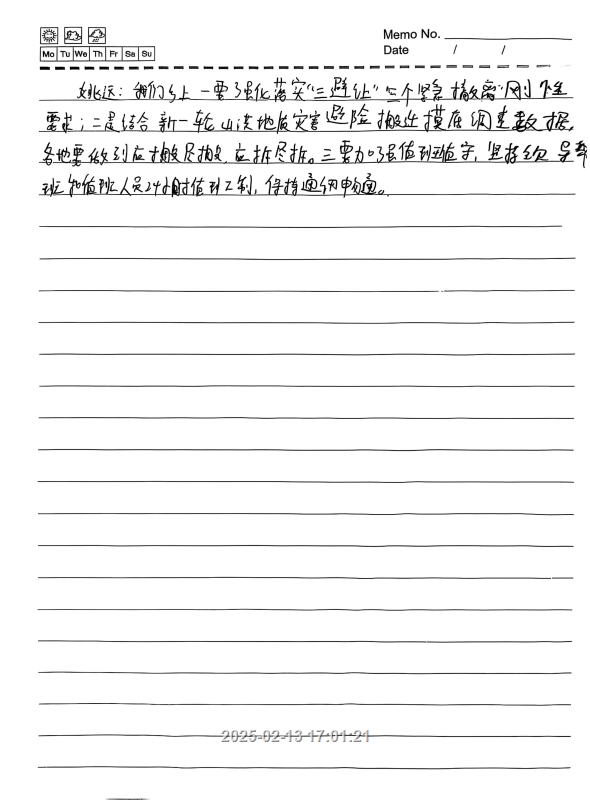 Memo No.
Mo Tu We Th Fr Sa Su
Date / /
姚远：我们乡上一要强化落实“三避让”“三个紧急撤离”刚性
要求；二是结合新一轮山洪地质灾害避险搬迁摸底调查数据，
各地要做到应搬尽搬，应拆尽拆。三要加强值班值守，坚持领导带
班和值班人员24小时值班工制，保持通信畅通。
2025-02-13 17:01:21